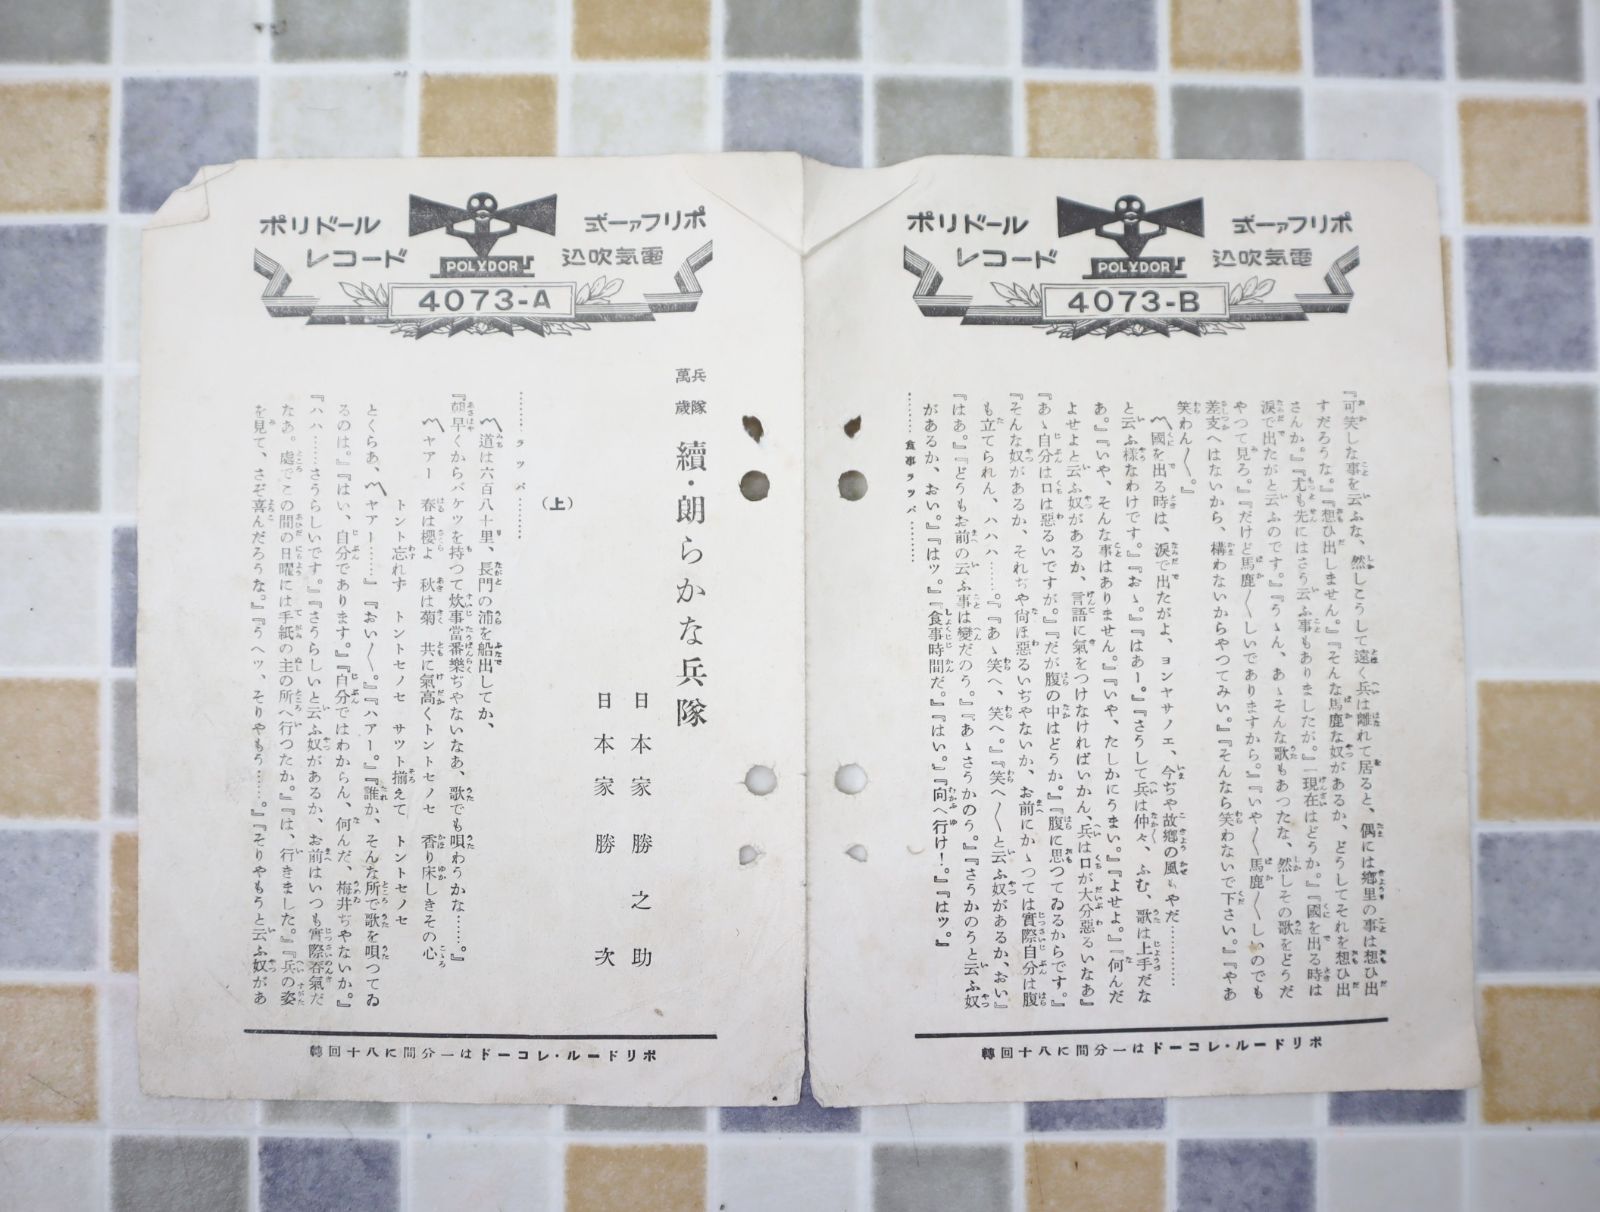 ポリドール
レコード
ポリファー式
電気吹込
POLYDOR
4073-A
兵隊萬歳
續・朗らかな兵隊
日本家勝之助
日本家勝次
(上)
………ラッパ………
〽道は六百八十里、長門の浦を船出してか、
『朝早くからバケツを持つて炊事當番樂ぢやないなあ、歌でも唄わうかな……。』
〽ヤアー 春は櫻よ 秋は菊 共に氣高くトントセノセ 香り床しきその心
トント忘れず トントセノセ サツト揃えて トントセノセ
とくらあ、〽ヤアー……』『おい〳〵。』『ハアー。』『誰か、そんな所で歌を唄つてゐ
るのは。』『はい、自分であります。』『自分ではわからん、何んだ、梅井ぢやないか。』
『ハハ……さうらしいです。』『さうらしいと云ふ奴があるか、お前はいつも實際呑氣だ
なあ。處でこの間の日曜には手紙の主の所へ行つたか。』『は、行きました。』『兵の姿
を見て、さぞ喜んだろうな。』『うヘッ、そりやもう……。』『そりやもうと云ふ奴があ
ポリドール・レコードは一分間に八十回轉
ポリドール
レコード
ポリファー式
電気吹込
POLYDOR
4073-B
『可笑しな事を云ふな、然しこうして遠く兵は離れて居ると、偶には郷里の事は想ひ出
すだろうな。』『想ひ出しません。』『そんな馬鹿な奴があるか、どうしてそれを想ひ出
さんか。』『尤も先にはさう云ふ事もありましたが。』『現在はどうか。』『國を出る時は
涙で出たがと云ふのです。』『うゝん、あゝそんな歌もあつたな、然しその歌をどうだ
やつて見ろ。』『だけど馬鹿〳〵しいでありますから。』『いや〳〵馬鹿〳〵しいのでも
差支へはないから、構わないからやつてみい。』『そんなら笑わないで下さい。』『やあ
笑わん〳〵。』
〽國を出る時は、涙で出たがよ、ヨンヤサノエ、今ぢや故郷の風もやだ…………
と云ふ様なわけです。』『おゝ。』『はあー。』『さうして兵は仲々、ふむ、歌は上手だな
あ。』『いや、そんな事はありません。』『いや、たしかにうまい。』『よせよ。』『何んだ
よせよと云ふ奴があるか、言語に氣をつけなければいかん、兵は口が大分惡るいなあ』
『あゝ自分は口は惡るいですが。』『だが腹の中はどうか。』『腹に思つてゐるからです。』
『そんな奴があるか、それぢや尚ほ惡るいぢやないか、お前にかゝつては實際自分は腹
も立てられん、ハハハ……。』『あゝ笑へ、笑へ。』『笑へ〳〵と云ふ奴があるか、おい』
『はあ。』『どうもお前の云ふ事は變だのう。』『あゝさうかのう。』『さうかのうと云ふ奴
があるか、おい。』『はッ。』『食事時間だ。』『はい。』『向へ行け！。』『はッ。』
………食事ラッパ………
ポリドール・レコードは一分間に八十回轉